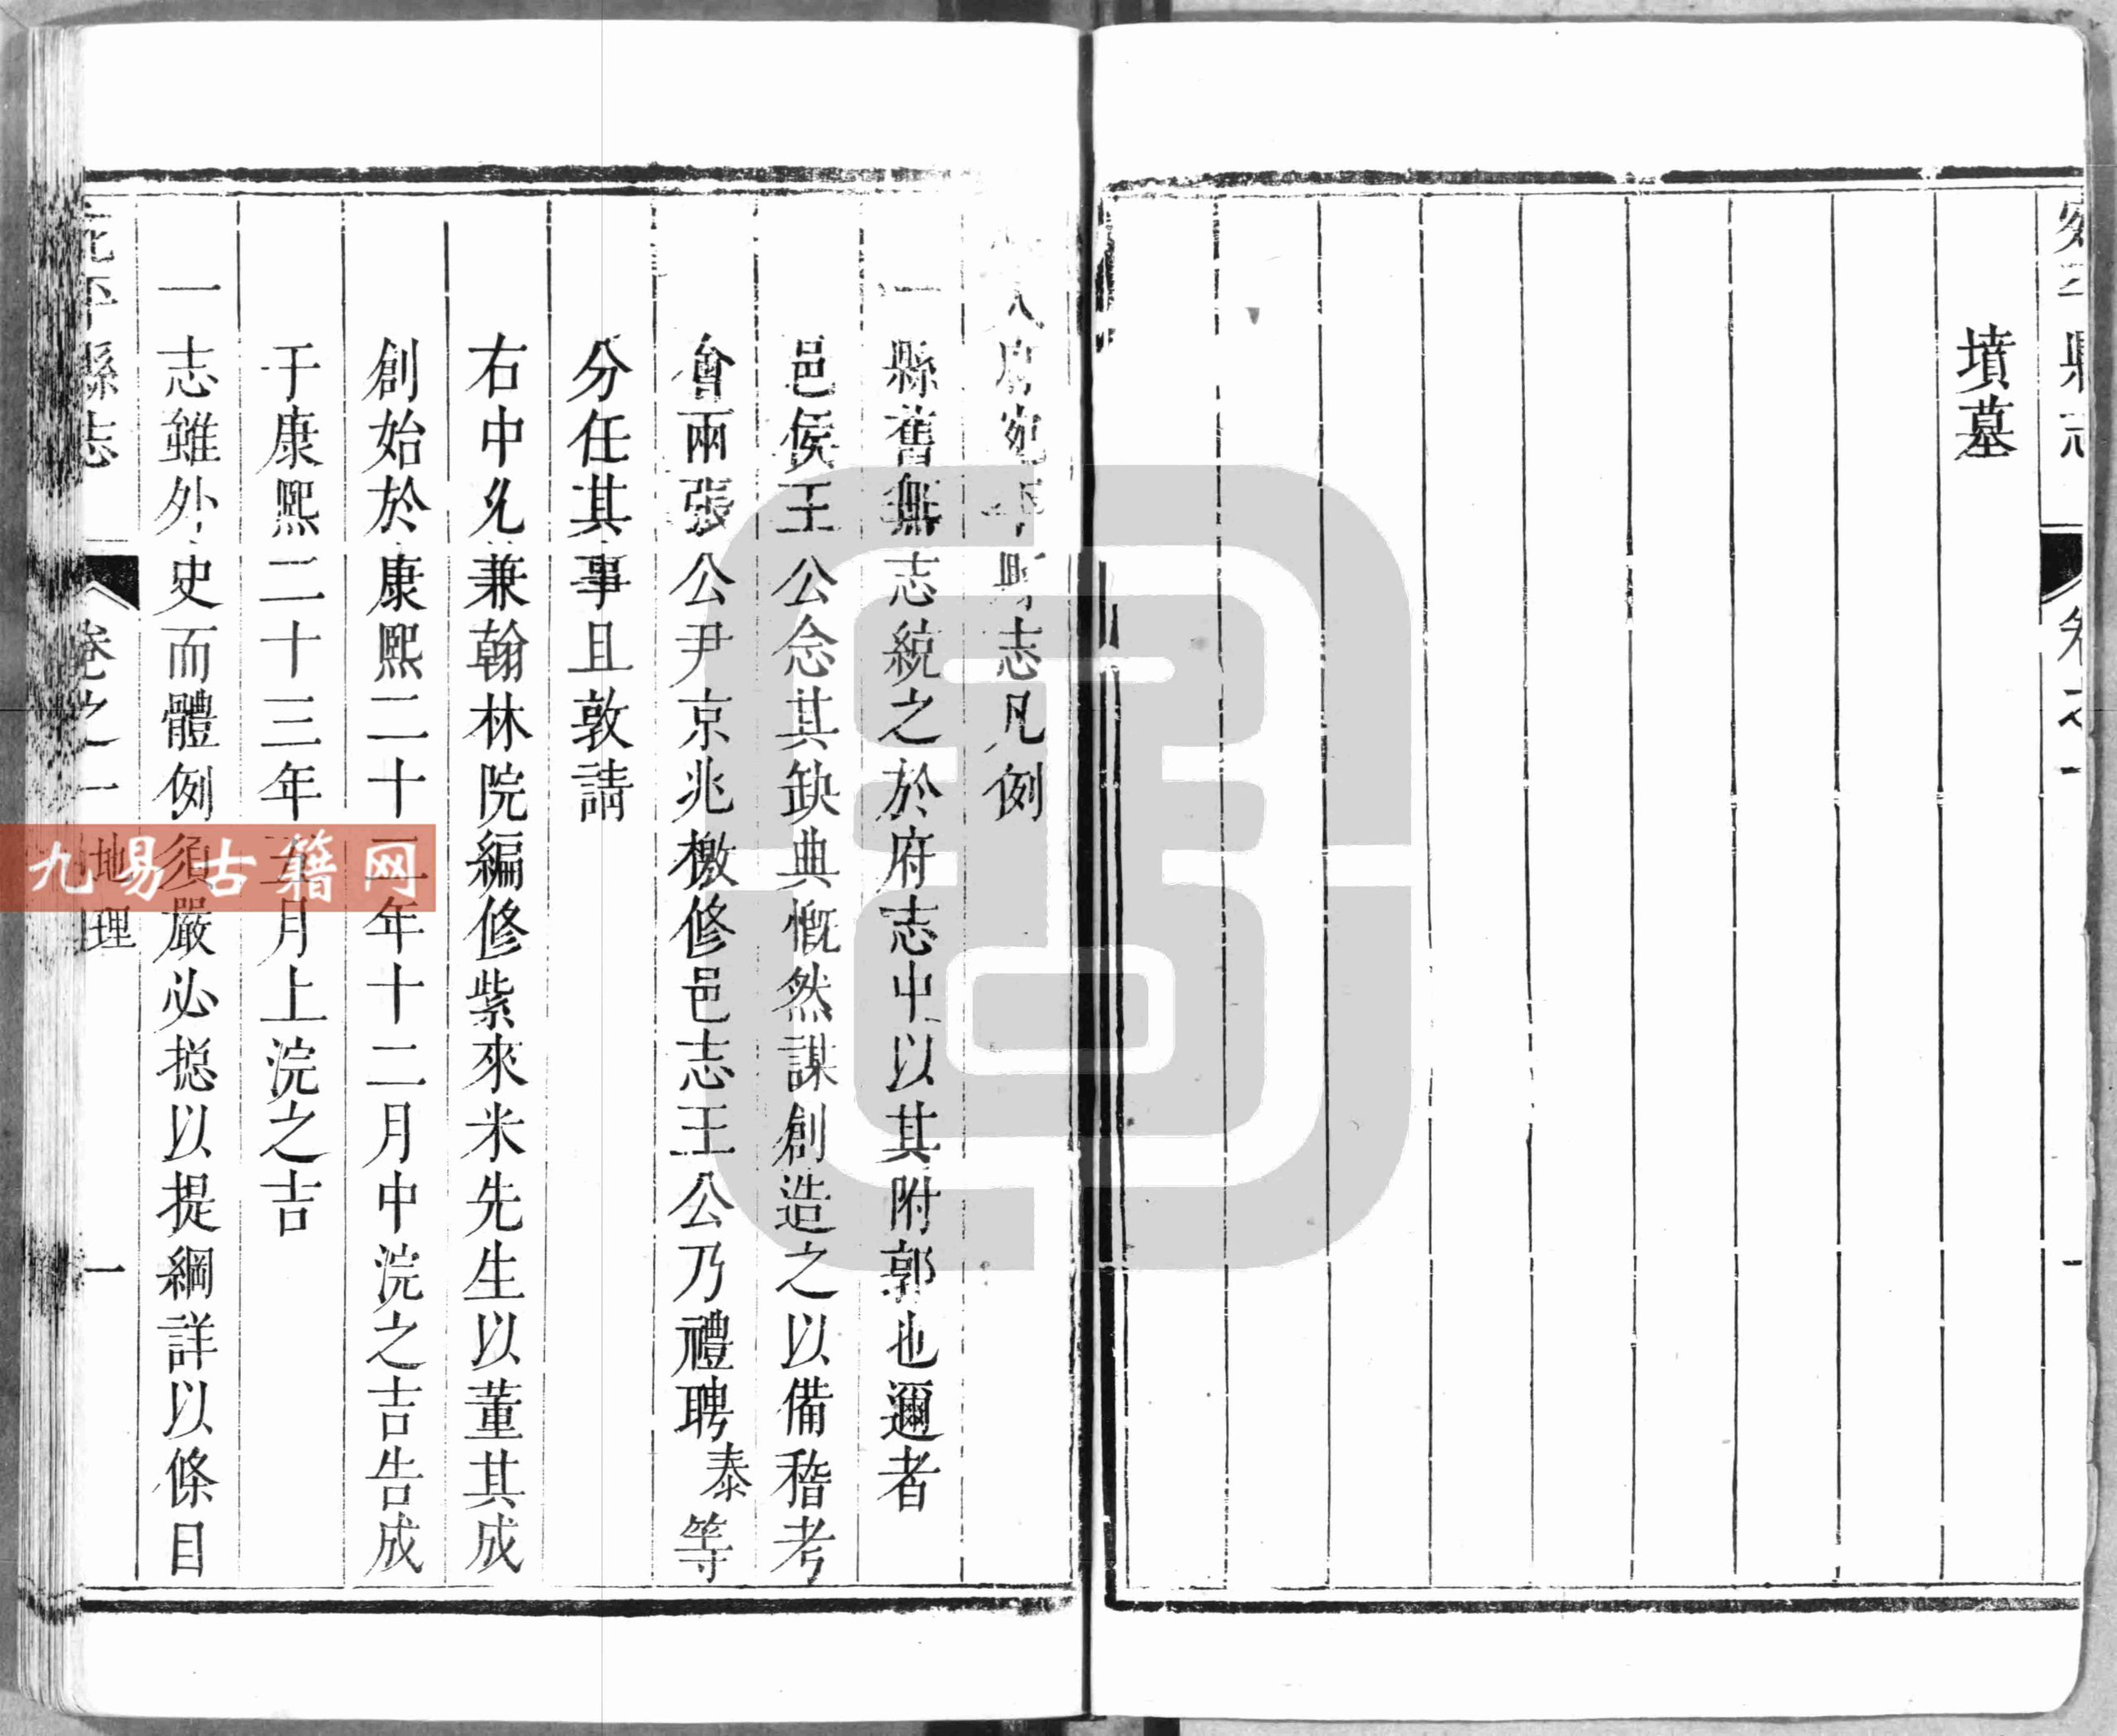 宛平縣志
卷之一
一
墳墓
府宛平縣志凡例
一縣舊無志統之於府志中以其附郭也邇者
邑侯王公念其缺典慨然謀創造之以備稽考
會兩張公尹京兆檄修邑志王公乃禮聘泰等
分任其事且敦請
右中允兼翰林院編修紫來米先生以董其成
創始於康熙二十二年十二月中浣之吉告成
于康熙二十三年五月上浣之吉
一志雖外史而體例須嚴必摠以提綱詳以條目
宛平縣志
卷之一
地理
一
九易古籍网